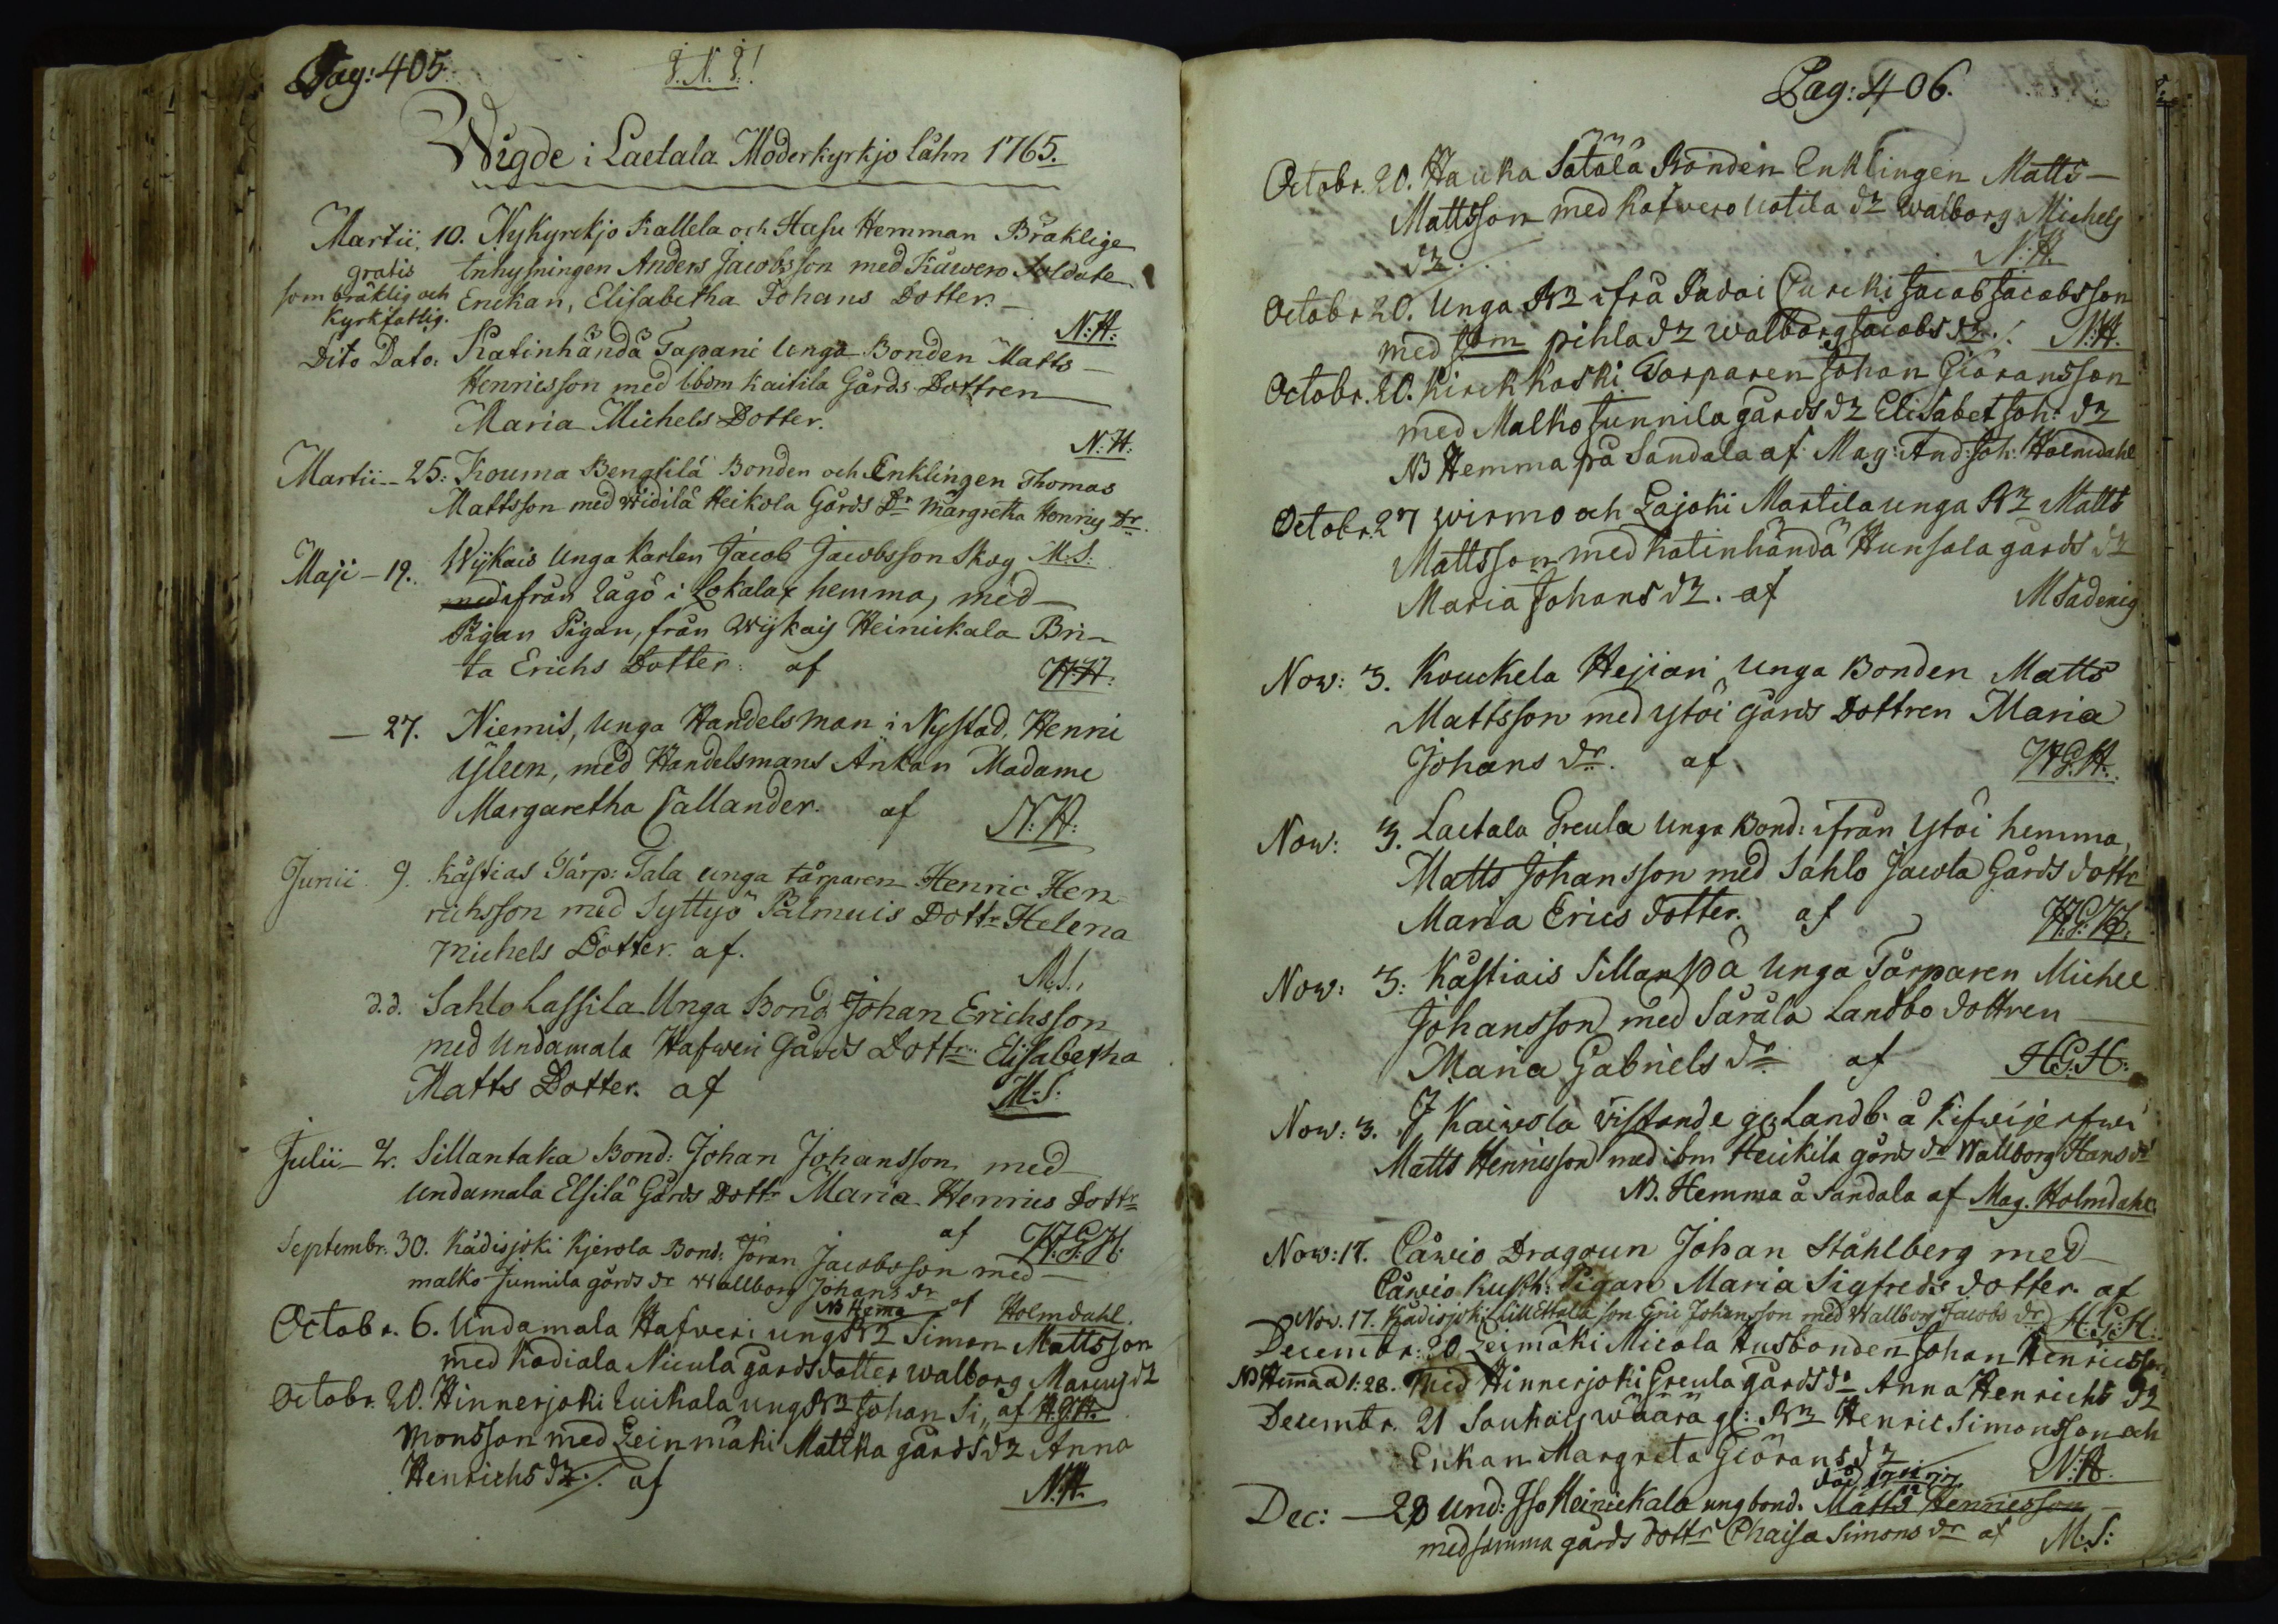 Pag: 405.
J. N. J!
Wigde i Laetala Moderkyrkjo låhn 1765.
Martii. 10. Nykyrckjo Kallela och Hasu Hemman Bräklige
gratis Inhysningen Anders Jacobsson med Käwero Soldate
som bräklig och Enckan, Elisabetha Johans Dotter.
Kyrkfattig. N:H:
Dito Dato. Katinhändä Tapani Unga Bonden Matts
Henricsson med Ibdm Kaitila Gårds Dottren
Maria Michels Dotter.
N:H:
Martii 25: Kouma Bengtilä Bonden och Enklingen Thomas
Mattsson med Widilä Heikola Gårds Dr Margretha Henrics Dr.
Maji - 19. Wijkais Unga Karlen Jacob Jacobsson Skog M:S:
med ifrån Lågö i Lokalax hemma, med
Pigan Pigan, från Wijkais Heinickala Bri-
ta Erichs Dotter. af N:H:
- 27. Niemis, Unga Handelsman i Nystad, Henric
Yleen, med Handelsmans Änkan Madame
Margaretha Callander. af N:H:
Junii. 9. Kåstias Tårp: Tala unga tårparen Henric Hen
richsson med Syttyö Palmuis Dottr Helena
Michels Dotter. af.
M:S:
d.d. Sahlo Lassila Unga Bond Johan Erichsson
med Undamala Hafweri Gårds Dottr Elisabetha
Matts Dotter. af M:S:
Julii - 2. Sillantaka Bond: Johan Johansson med
Undamala Elsilä Gårds Dottr Maria Henrics Dottr
af H:G:H:
Septembr: 30. Kådisjoki Kjerola Bond: Jöran Jacobsson med
malko Junnila gårds dr Wallborg Johans dr
NB Hema af Holmdahl.
Octobr. 6. Undamala Hafveri ung Bn Simon Mattsson
med Kodiala Nicula gårdsdotter walborg Marcus dr
Octobr. 20. Hinnerjoki Luikala ung Bn Johan Si,, af H.G.H.
monsson med Leinmäki Mattka gårds dr Anna
Henrichs dr. af
N.H.
Pag: 406.
Octobr. 20. Hauka Sätälä Bonden Enklingen Matts
Mattsson med Kafvero Uotila dr Walborg Michels
dr. N.H.
Octobr 20. Unga Bn ifrå Padoi Curcki Jacob Jacobsson
med Ibm pihla dr walborg Jacobs dr. N:H.
Octobr. 20. Kirckkoski Torparen Johan Giöransson
med Malko Junnila gårds dr Elisabet Joh: dr
NB Hemma på Sandala af Mag: And: Joh: Holmdahl
Octobr 27 Wirmo och Lajoki Martila unga Bn Matts
Mattsson med Katinhändä Hunsala gårds dr
Maria Johans dr. af M Sadenig
Now: 3. Kouckela Hejjari Unga Bonden Matts
Mattsson med Ytöi Gårds Dottren Maria
Johans dr. af H:G:H.
Now: 3. Laetala Greula Unga Bond: ifrån Ytöi hemma,
Matts Johansson med Sahlo Jacola Gårds dottr
Maria Erics dotter. af H:G:H:
Now: 3: Kåstiais Sillanpä Unga Tårparen Michel
Johansson med Särälä Landbo dottren
Maria Gabriels dr af H:G:H:
Now: 3. I Kaivola vistande gl. Landb. å Kifwijerfwi
Matts Henricsson med ibm Heickilä gårds dr Wallborg Hans dr
NB. Hemma å Sandala af Mag. Holmdahl.
Now: 17. Cåwio Dragoun Johan Ståhlberg med
Cåwio Kusk: Pigan Maria Sigfreds dotter. af
Nov. 17. Kådisjoki Lill Ettala son Eric Johansson med Wallborg Jacobs dr H:G:H:
Decembr: 20 Leimäki Micola Husbonden Johan Henricsson
NB Hemma d 1: 28. Med Hinnerjoki Greula gårds dr Anna Henrichs dr
Decembr. 21 Soukais wäärä gl: Bn Henric Simonsson och
Enkan Margreta Giörans dr
N:H.
Dec: - 28 Und: Iso Heinickala ung bond. Matts Henricsson
med samma gårds dottr Chaisa Simons dr af M:S: